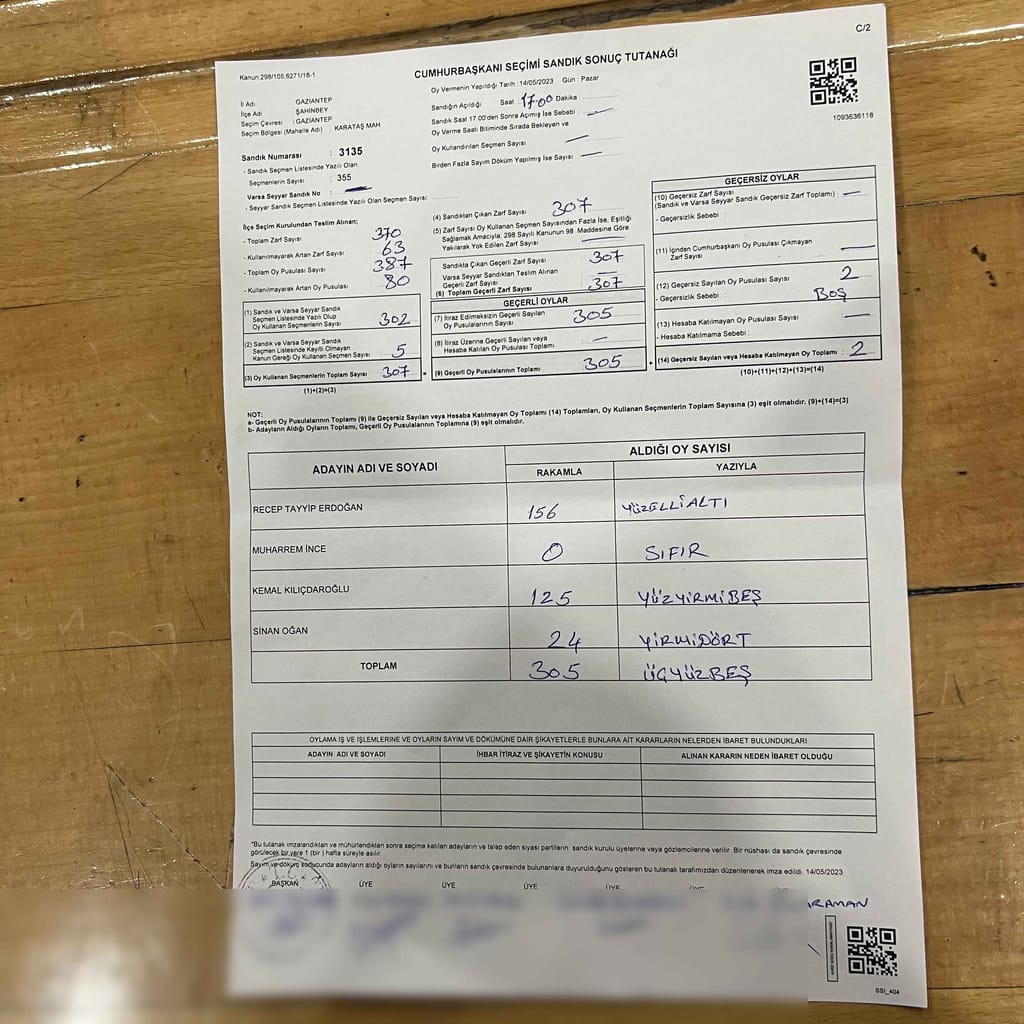 C/2
Kanun:298/105,6271/18-1
CUMHURBAŞKANI SEÇİMİ SANDIK SONUÇ TUTANAĞI
Oy Vermenin Yapıldığı Tarih : 14/05/2023 Gün : Pazar
İl Adı GAZİANTEP
İlçe Adı ŞAHİNBEY
Seçim Çevresi : GAZİANTEP
Seçim Bölgesi (Mahalle Adı) : KARATAŞ MAH
Sandığın Açıldığı Saat 17.00 Dakika
Sandık Saat 17.00'den Sonra Açımış İse Sebebi : —
Oy Verme Saati Bitiminde Sırada Bekleyen ve
Oy Kullandırılan Seçmen Sayısı —
Birden Fazla Sayım Döküm Yapılmış İse Sayısı —
1093636118
Sandık Numarası : 3135
- Sandık Seçmen Listesinde Yazılı Olan
Seçmenlerin Sayısı : 355
Varsa Seyyar Sandık No : —
- Seyyar Sandık Seçmen Listesinde Yazılı Olan Seçmen Sayısı:
İlçe Seçim Kurulundan Teslim Alınan;
- Toplam Zarf Sayısı 370
- Kullanılmayarak Artan Zarf Sayısı 63
- Toplam Oy Pusulası Sayısı 387
- Kullanılmayarak Artan Oy Pusulası 80
(1) Sandık ve Varsa Seyyar Sandık
Seçmen Listesinde Yazılı Olup
Oy Kullanan Seçmenlerin Sayısı 302
(2) Sandık ve Varsa Seyyar Sandık
Seçmen Listesinde Kayıtlı Olmayan
Kanun Gereği Oy Kullanan Seçmen Sayısı 5
(3) Oy Kullanan Seçmenlerin Toplam Sayısı 307
(1)+(2)=(3)
(4) Sandıktan Çıkan Zarf Sayısı 307
(5) Zarf Sayısı Oy Kullanan Seçmen Sayısından Fazla İse, Eşitliği
Sağlamak Amacıyla; 298 Sayılı Kanunun 98 Maddesine Göre
Yakılarak Yok Edilen Zarf Sayısı —
Sandıkta Çıkan Geçerli Zarf Sayısı 307
Varsa Seyyar Sandıktan Teslim Alınan
Geçerli Zarf Sayısı —
(6) Toplam Geçerli Zarf Sayısı 307
GEÇERLİ OYLAR
(7) İtiraz Edilmeksizin Geçerli Sayılan
Oy Pusulalarının Sayısı 305
(8) İtiraz Üzerine Geçerli Sayılan veya
Hesaba Katılan Oy Pusulası Toplamı —
= (9) Geçerli Oy Pusulalarının Toplamı 305
GEÇERSİZ OYLAR
(10) Geçersiz Zarf Sayısı —
(Sandık ve Varsa Seyyar Sandık Geçersiz Zarf Toplamı) :
- Geçersizlik Sebebi :
(11) İçinden Cumhurbaşkanı Oy Pusulası Çıkmayan
Zarf Sayısı —
(12) Geçersiz Sayılan Oy Pusulası Sayısı 2
- Geçersizlik Sebebi : BOŞ
(13) Hesaba Katılmayan Oy Pusulası Sayısı —
- Hesaba Katmama Sebebi :
+ (14) Geçersiz Sayılan veya Hesaba Katılmayan Oy Toplamı : 2
(10)+(11)+(12)+(13)=(14)
NOT:
a- Geçerli Oy Pusulalarının Toplamı (9) ile Geçersiz Sayılan veya Hesaba Katılmayan Oy Toplamı (14) Toplamları, Oy Kullanan Seçmenlerin Toplam Sayısına (3) eşit olmalıdır. (9)+(14)=(3)
b- Adayların Aldığı Oyların Toplamı, Geçerli Oy Pusulalarının Toplamına (9) eşit olmalıdır.
ADAYIN ADI VE SOYADI ALDIĞI OY SAYISI
RAKAMLA YAZIYLA
RECEP TAYYİP ERDOĞAN 156 YÜZELLİALTI
MUHARREM İNCE 0 SIFIR
KEMAL KILIÇDAROĞLU 125 YÜZYİRMİBEŞ
SİNAN OĞAN 24 YİRMİDÖRT
TOPLAM 305 ÜÇYÜZBEŞ
OYLAMA İŞ VE İŞLEMLERİNE VE OYLARIN SAYIM VE DÖKÜMÜNE DAİR ŞİKAYETLERLE BUNLARA AİT KARARLARIN NELERDEN İBARET BULUNDUKLARI
ADAYIN ADI VE SOYADI İHBAR İTİRAZ VE ŞİKAYETİN KONUSU ALINAN KARARIN NEDEN İBARET OLDUĞU
*Bu tutanak imzalandıktan ve mühürlendikten sonra seçime katılan adayların ve talep eden siyasi partilerin sandık kurulu üyelerine veya gözlemcilerine verilir. Bir nüshası da sandık çevresinde
görülecek bir yere 1 (bir ) hafta süreyle asılır.
Sayım ve döküm sonucunda adayların aldığı oyların sayılarını ve bunların sandık çevresinde bulunanlara duyurulduğunu gösteren bu tutanak tarafımızdan düzenlenerek imza edildi. 14/05/2023
BAŞKAN ÜYE ÜYE ÜYE ÜYE
ARAMAN
SSI_404